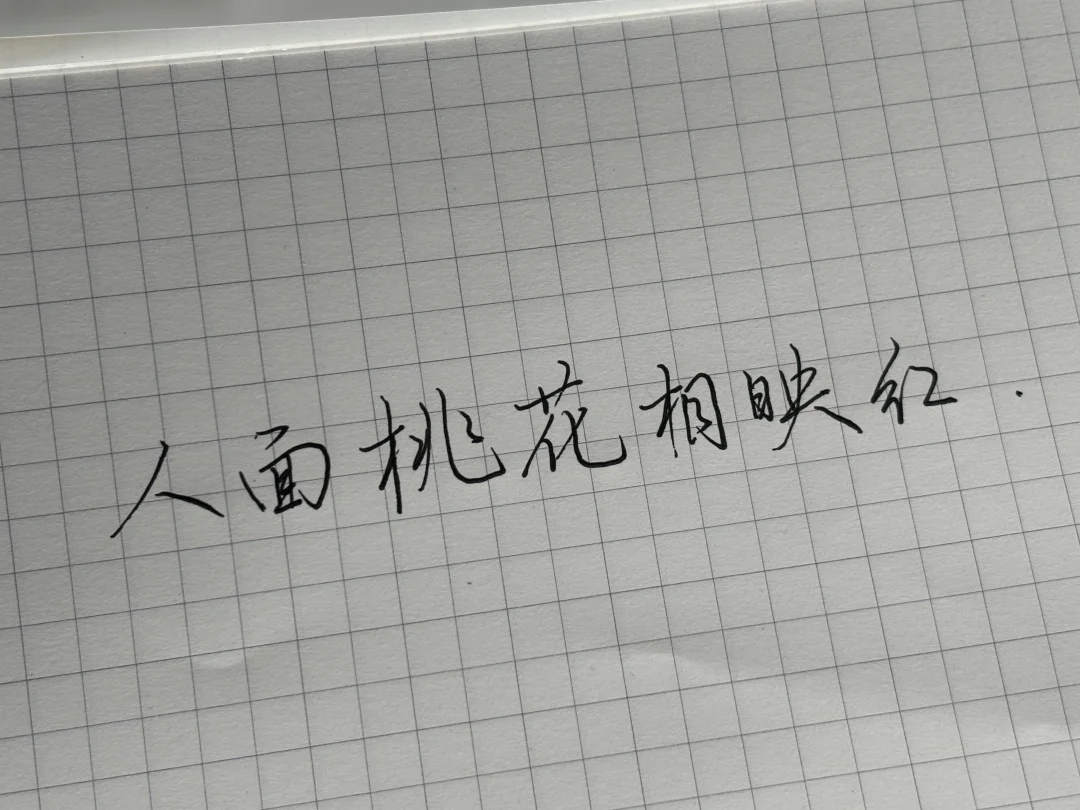 人面桃花相映红.